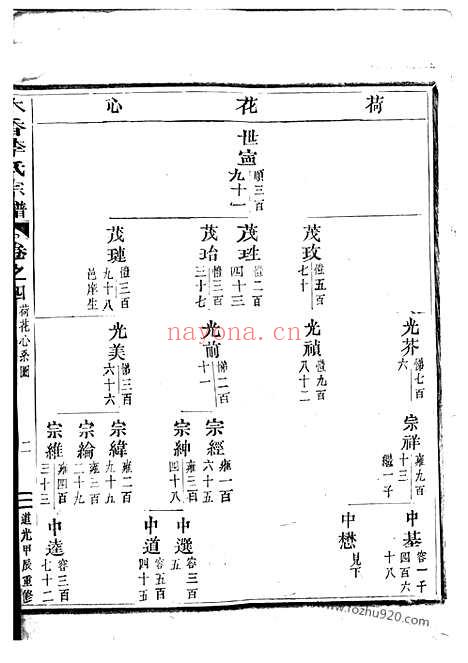 荷花心
世寍
順三百九十一
茂玫
愷五百七十
茂珄
愷二百四十三
茂珆
愷三百三十七
茂璉
愷三百九十八
邑庠生
光芥
悌七百六
光禎
愷九百八十二
光前
悌二百十一
光美
悌三百六十六
宗祥
雍九百十三
繼一子
宗經
雍一百六十五
宗紳
雍三百四十八
宗緯
雍二百九十九
宗綸
雍三百二十九
宗維
雍四百三十三
中基
容一千四百六十八
中懋
見下
中選
容三百五
中道
容五百四十五
中逵
容三百七十二
香李氏宗譜
卷之四
荷花心系圖
二
道光甲辰重修
nayona.cn
www.fozhu920.com